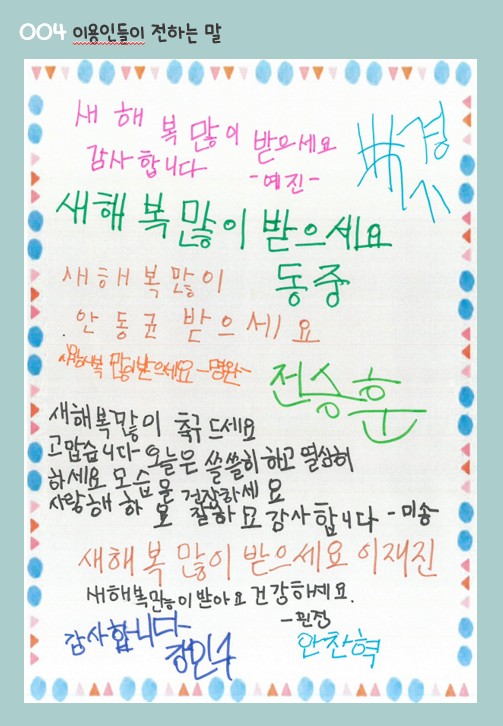 004 이용인들이 전하는 말
새 해 복 많이 받으세요
감사합니다 -예진-
새해 복 많이 받으세요
동중
새해복많이
안동균 받으세요
새해복 많이받으세요 -명완-
전승훈
새해복많이 축구 드세요
고맙습니다 오늘은 쓸쓸히 하고 열심히
하세요 모습을 건강하세요
사랑해 하요 잘하요 감사합니다 -미송
새해 복 많이 받으세요 이재진
새해복많이 받아요 건강하세요.
-원정
감사합니다
안찬혁